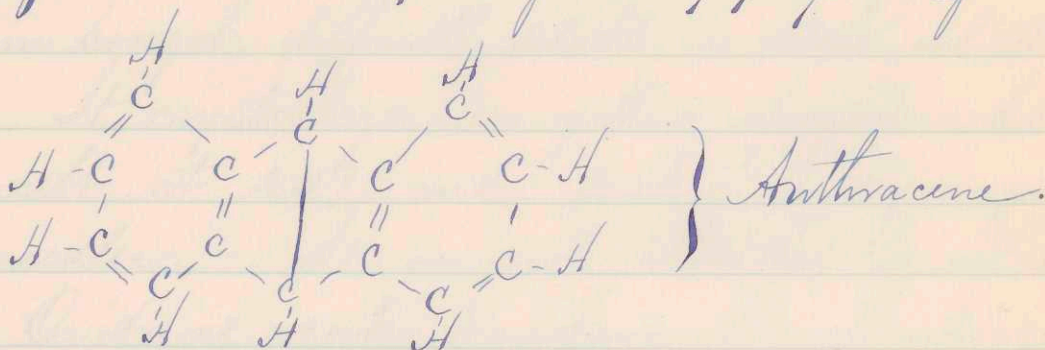 H
H H
C C
C
H - C C C C - H
H - C C C C - H
C C C
H H H
Anthracene.